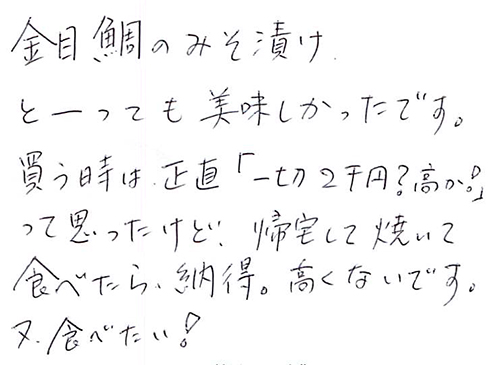 金目鯛のみそ漬け
とーっても美味しかったです。
買う時は正直「一切2千円?高か!」
って思ったけど、帰宅して焼いて
食べたら、納得。高くないです。
又、食べたい!